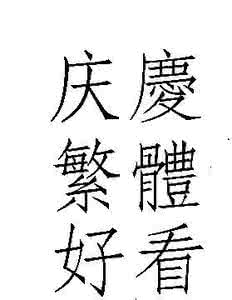 庆慶
繁體
好看